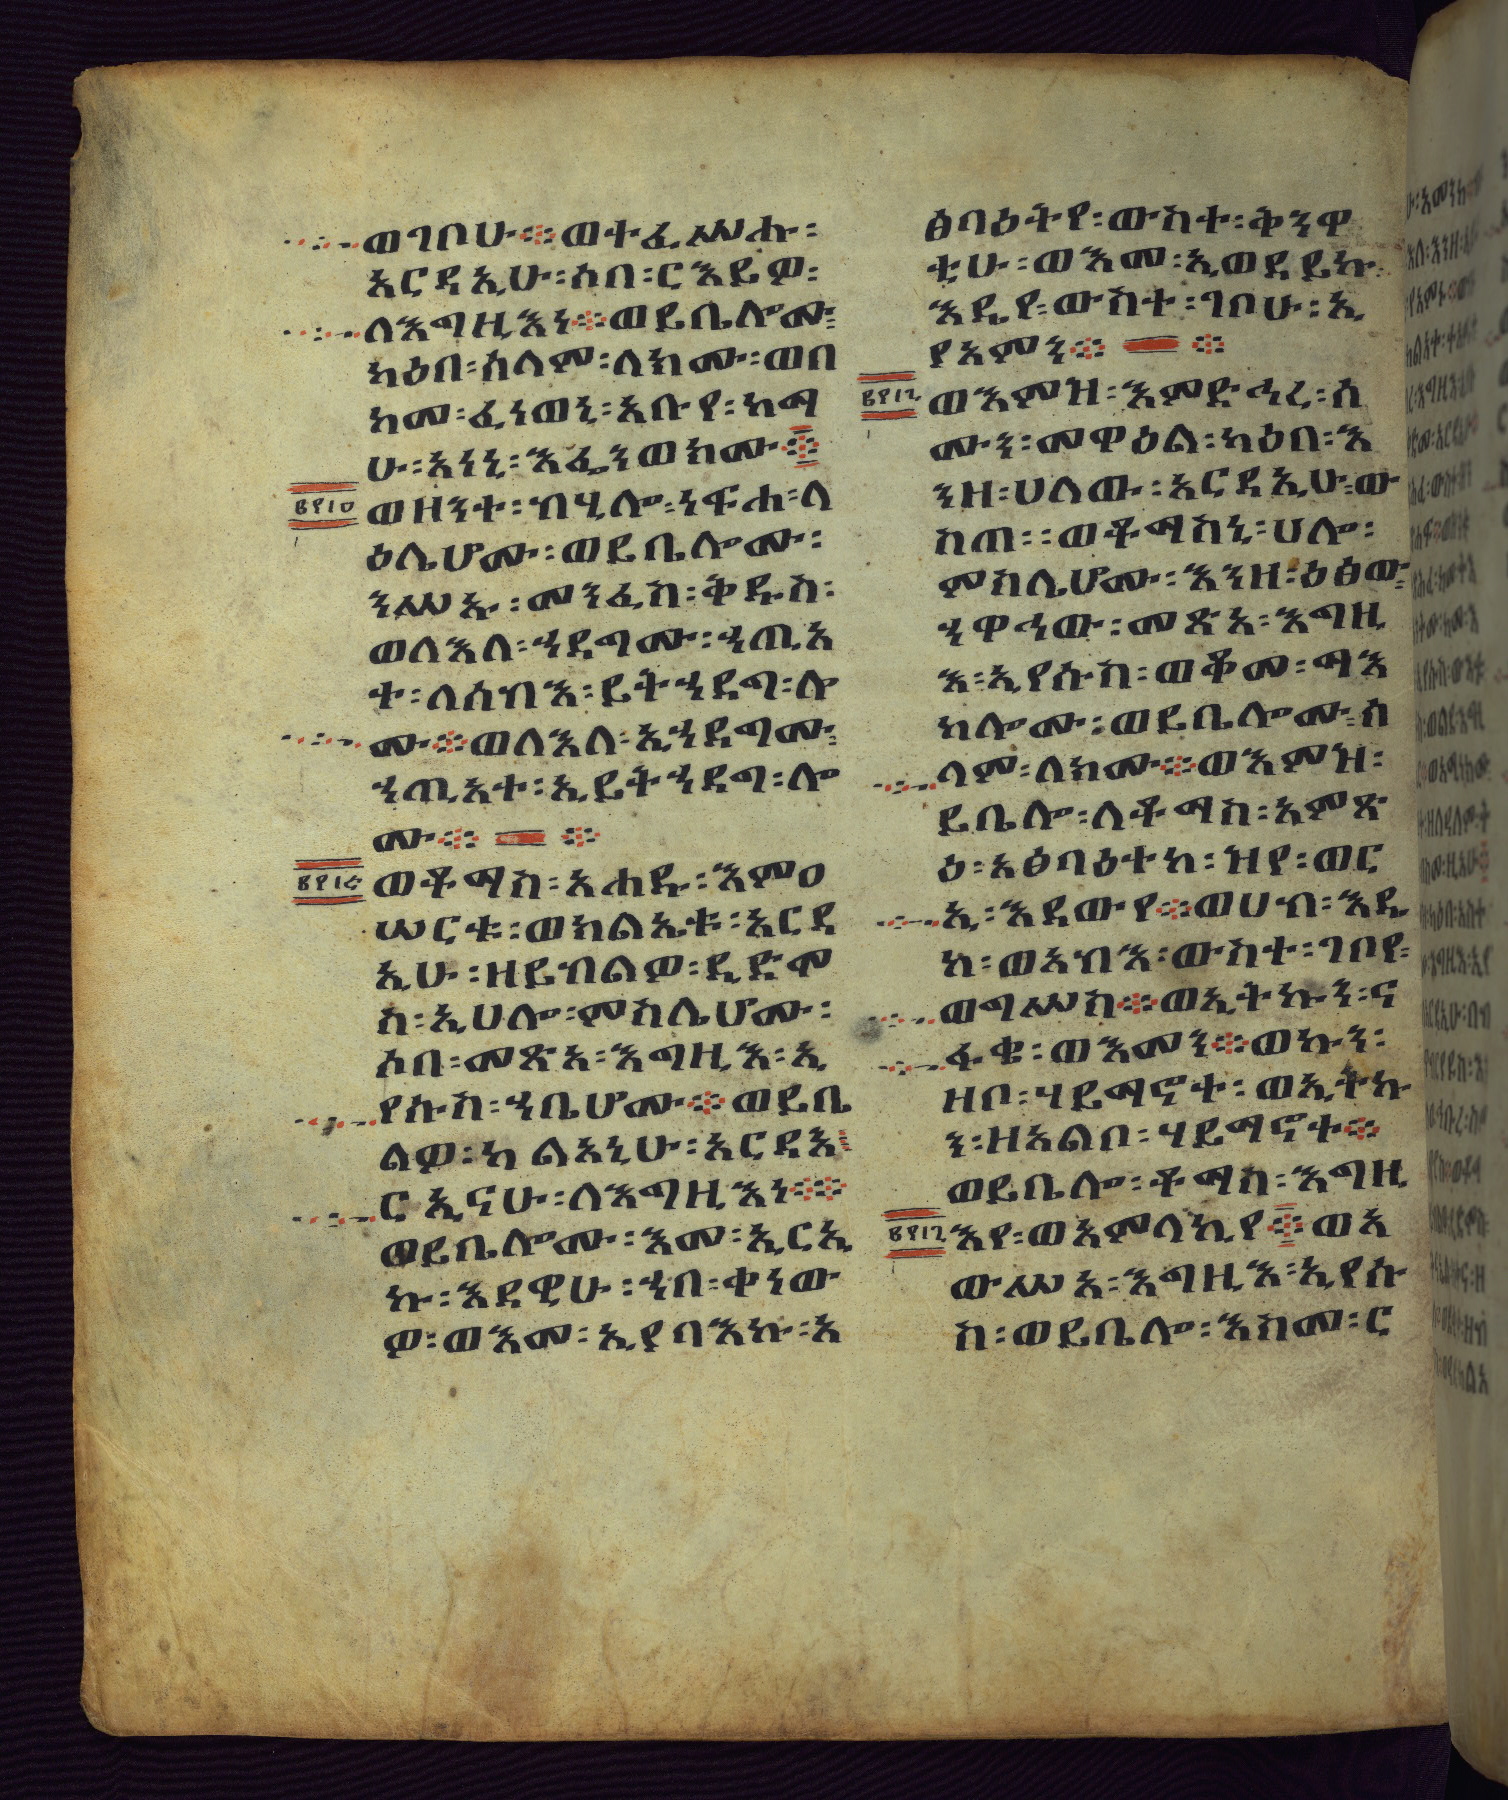 ወገቦሁ። ወተፈሥሑ፡
አርዳኢሁ፡ሶበ፡ርእይዎ፡
ለእግዚእነ። ወይቤሎሙ፡
ካዕበ፡ሰላም፡ለክሙ፡ወበ
ከመ፡ፈነወኒ፡አቡየ፡ከማ
ሁ፡አነኒ፡እፌንወክሙ።
ወዘንተ፡ብሂሎ፡ነፍሐ፡ላ
ዕሌሆሙ፡ወይቤሎሙ፡
ንሥኡ፡መንፈስ፡ቅዱስ፡
ወለእለ፡ኀደግሙ፡ኀጢአ
ተ፡ለሰብእ፡ይትኀደግ፡ሎ
ሙ። ወለእለ፡ኢኀደግሙ፡
ኀጢአተ፡ኢይትኀደግ፡ሎ
ሙ።
ወቶማስ፡አሐዱ፡እምዐ
ሠርቱ፡ወክልኤቱ፡አርዳ
ኢሁ፡ዘይብልዎ፡ዲድሞ
ስ፡ኢሀሎ፡ምስሌሆሙ፡
ሶበ፡መጽአ፡እግዚእ፡ኢ
የሱስ፡ኀቤሆሙ። ወይቤ
ልዎ፡ካልአኒሁ፡አርዳእ፡
ርኢናሁ፡ለእግዚእነ።
ወይቤሎሙ፡እመ፡ኢርኢ
ኩ፡እደዊሁ፡ኀበ፡ቀነው
ዎ፡ወእመ፡ኢያባእኩ፡አ
ፅባዕትየ፡ውስተ፡ቅንዋ
ቲሁ፡ወእመ፡ኢወደይኩ፡
እዴየ፡ውስተ፡ገቦሁ፡ኢ
የአምን።
ወእምዝ፡እምድኅረ፡ሰ
ሙን፡መዋዕል፡ካዕበ፡እ
ንዘ፡ሀለው፡አርዳኢሁ፡ው
ስጠ፡፡ወቶማስኒ፡ሀሎ፡
ምስሌሆሙ፡እንዘ፡ዕፅው፡
ኆዋኅው፡መጽአ፡እግዚ
እ፡ኢየሱስ፡ወቆመ፡ማእ
ከሎሙ፡ወይቤሎሙ፡ሰ
ላም፡ለክሙ። ወእምዝ፡
ይቤሎ፡ለቶማስ፡አምጽ
ዕ፡አፅባዕተከ፡ዝየ፡ወር
ኢ፡እደውየ። ወሀብ፡እዴ
ከ፡ወአብእ፡ውስተ፡ገቦየ፡
ወግሥሥ። ወኢትኩን፡ና
ፋቄ፡ወእመን። ወኩን፡
ዘቦ፡ሃይማኖተ፡ወኢትኩ
ን፡ዘአልቦ፡ሃይማኖተ።
ወይቤሎ፡ቶማስ፡እግዚ
እየ፡ወአምላኪየ። ወአ
ውሥአ፡እግዚእ፡ኢየሱ
ስ፡ወይቤሎ፡እስመ፡ር